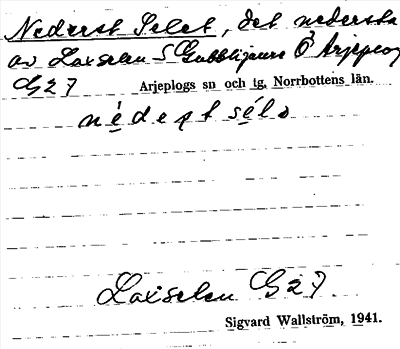 Nederst Selet, det nedersta
av Laxselen S Gubblijaure Ö Arjeplog
G27
Arjeplogs sn och tg, Norrbottens län.
Laxselen G27.
Sigvard Wallström, 1941.